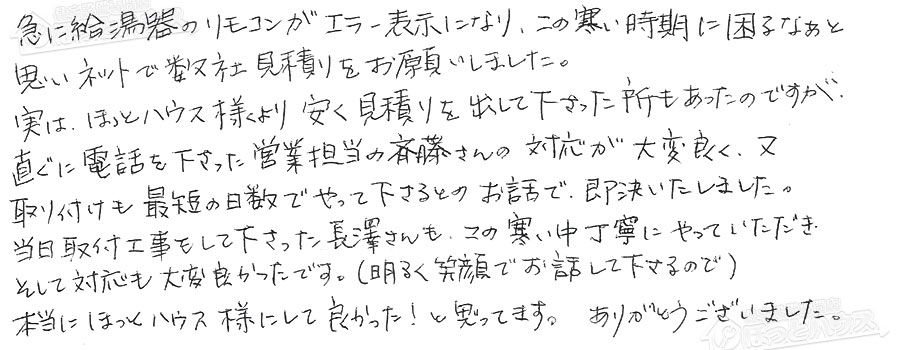 急に給湯器のリモコンがエラー表示になり、この寒い時期に困るなぁと
思いネットで数社見積りをお願いしました。
実は、ほっとハウス様より安く見積りを出して下さった所もあったのですが、
直ぐに電話を下さった営業担当の斉藤さんの対応が大変良く、又
取り付けも最短の日数でやって下さるとのお話で、即決いたしました。
当日取付工事をして下さった長澤さんも、この寒い中丁寧にやっていただき
そして対応も大変良かったです。(明るく笑顔でお話して下さるので)
本当にほっとハウス様にして良かった!と思ってます。 ありがとうございました。
ほっとハウス